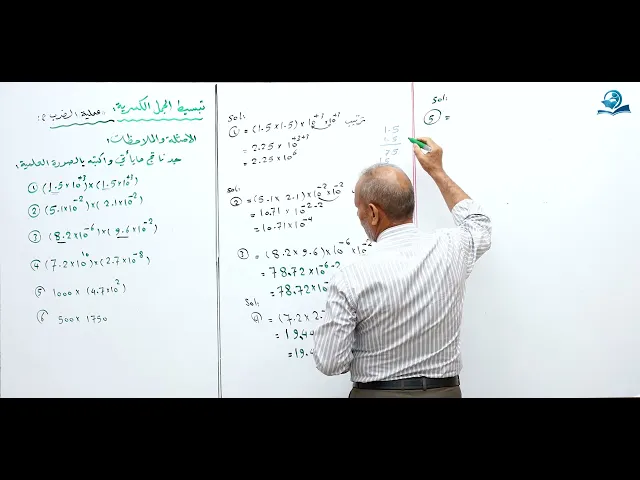 تبسيط الجمل الكسرية: عملية الضرب:
الأمثلة والملاحظات:
جد ناتج ما يأتي واكتبه بالصورة العلمية:
① (1.5×10⁺³)×(1.5×10⁺³)
② (5.1×10⁻²)×(2.1×10⁻²)
③ (8.2×10⁻⁶)×(9.6×10⁻²)
④ (7.2×10¹⁰)×(2.7×10⁻⁸)
⑤ 1000×(4.7×10²)
⑥ 500×1750
Sol:
① = (1.5×1.5)×10⁺³×10⁺³ ترتيب
= 2.25×10⁺³⁺³
= 2.25×10⁶
Sol:
② = (5.1×2.1)×10⁻²×10⁻²
= 10.71×10⁻²⁻²
= 10.71×10⁻⁴
③ = (8.2×9.6)×10⁻⁶×10⁻²
= 78.72×10⁻⁶⁻²
= 78.72×10
Sol:
④ = (7.2×2.
= 19.44
= 19.4
1.5
1.5
75
15
Sol:
⑤ =